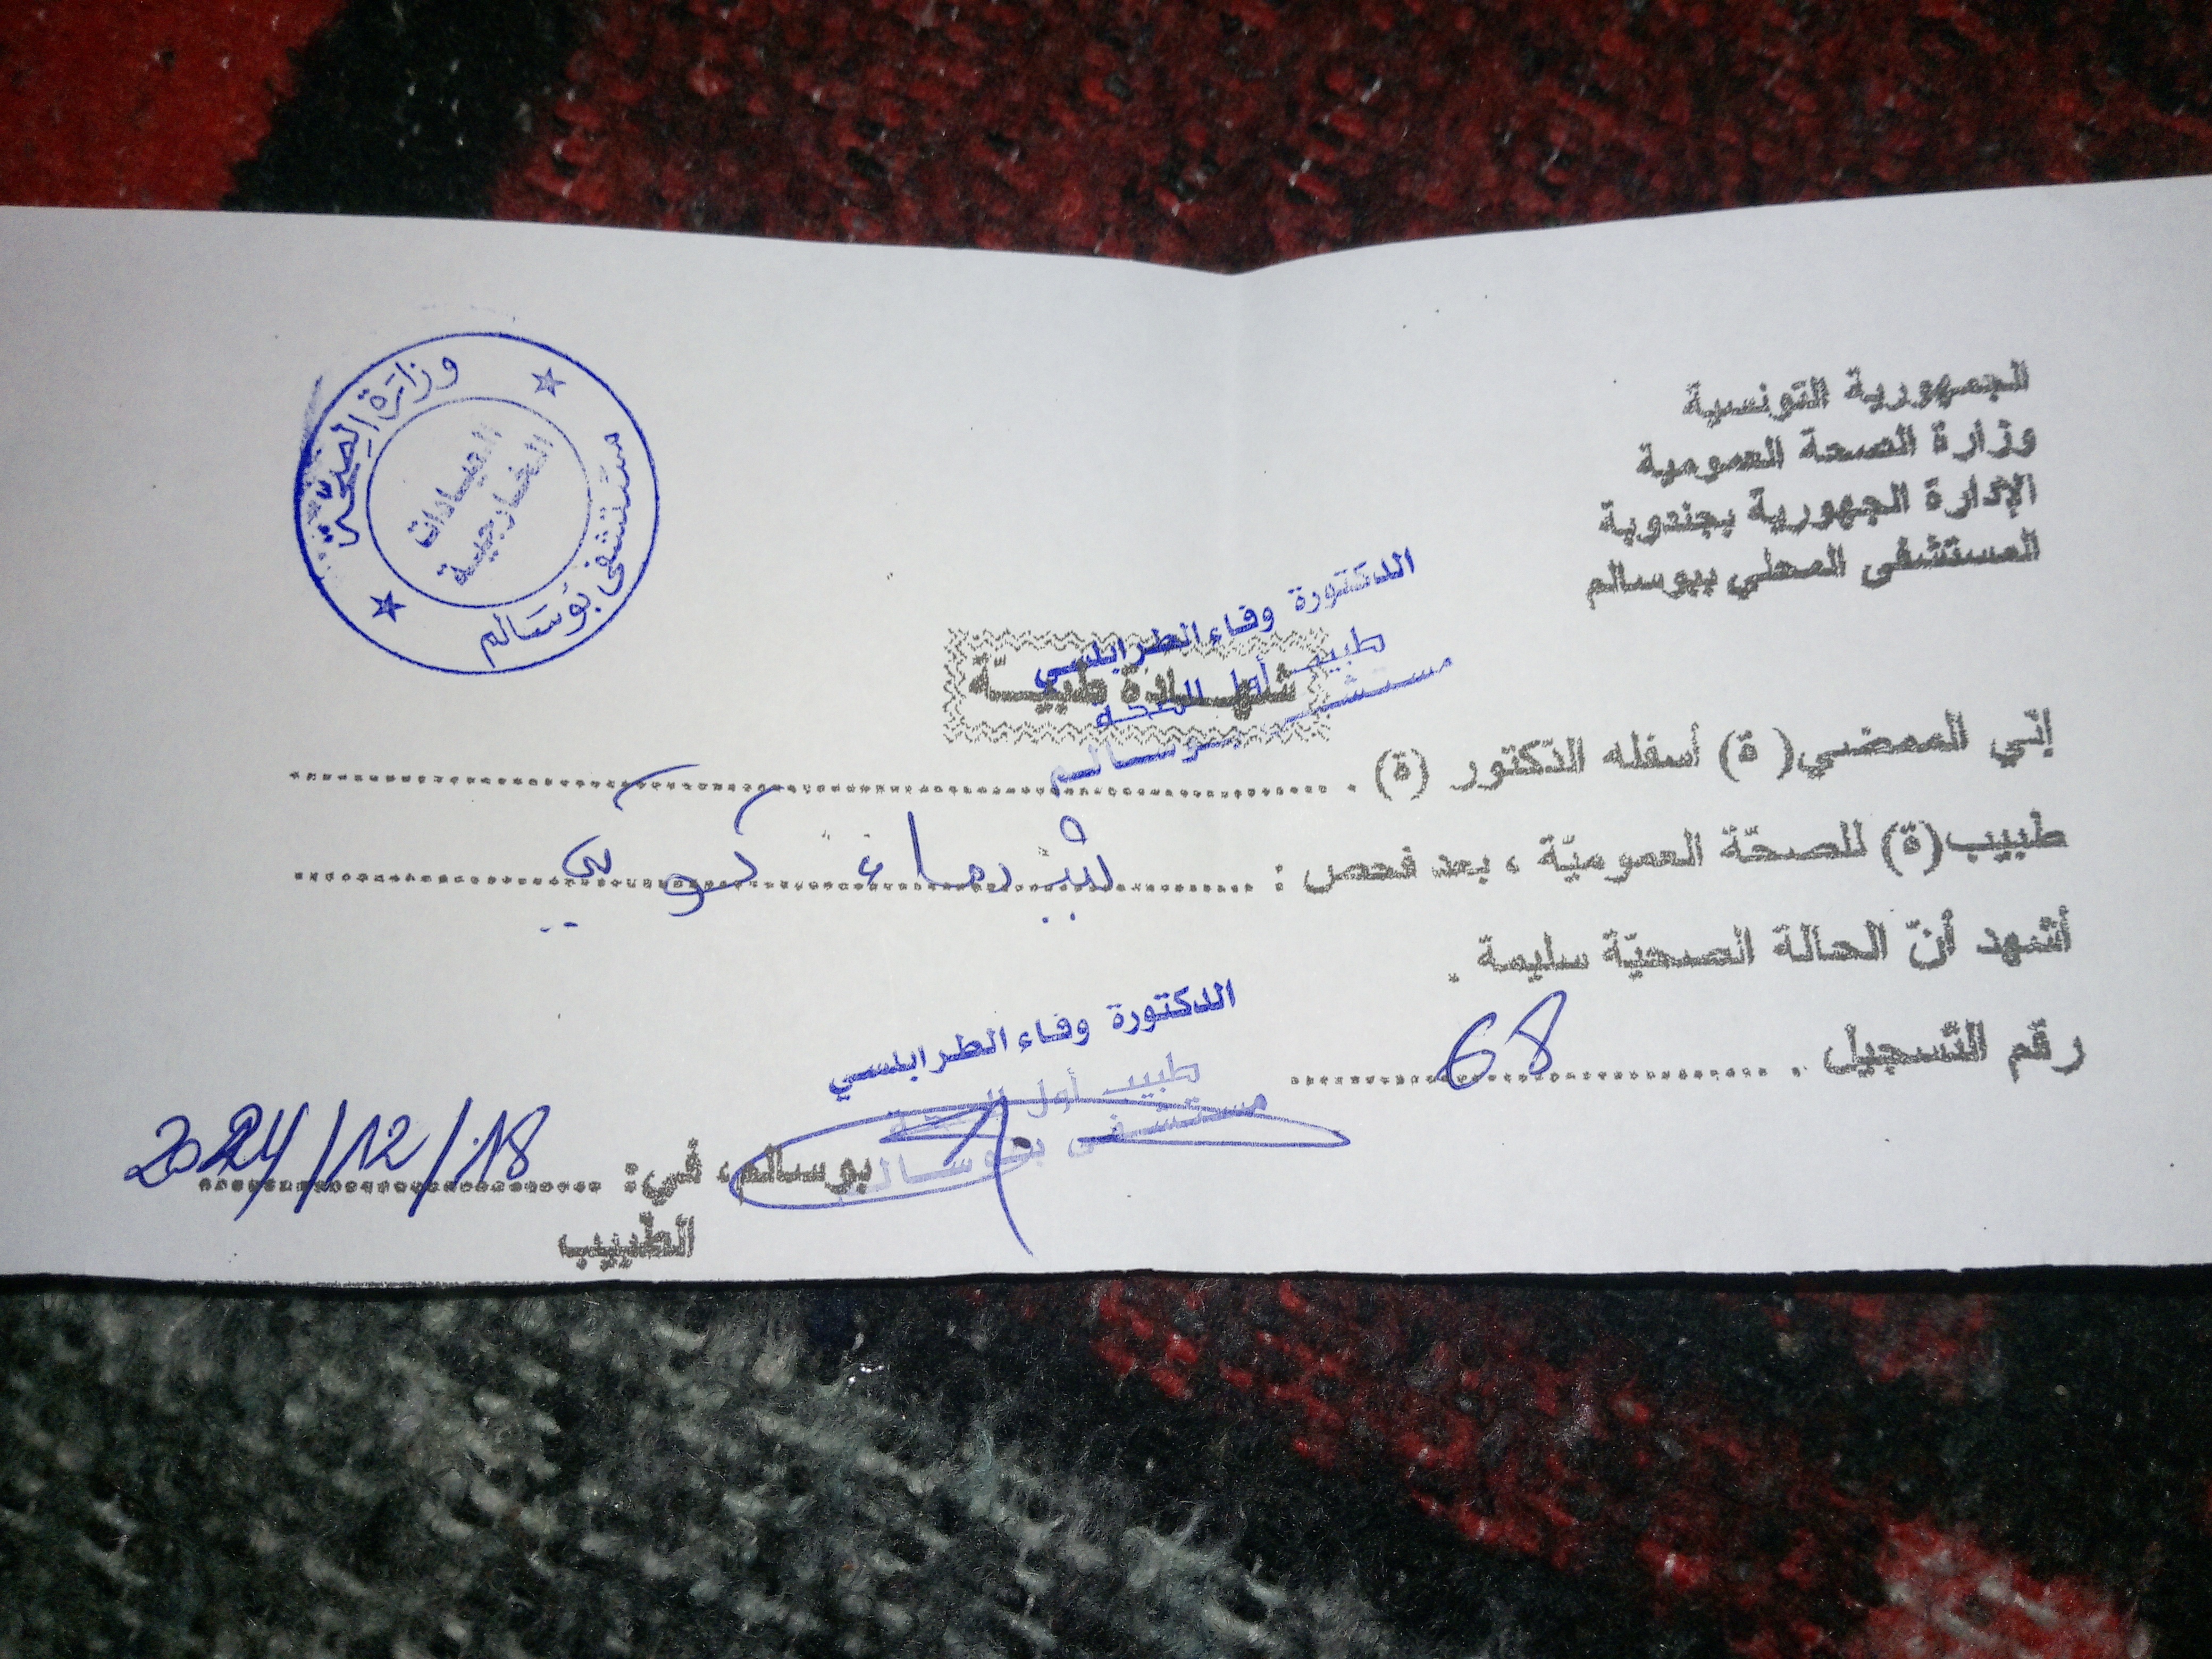 الجمهورية التونسية
وزارة الصحة العمومية
الإدارة الجهورية بجندوبة
المستشفى المحلي ببوسالم
وزارة الصحة
العيادات
الخارجية
مستشفى بوسالم
شهادة طبيّة
الدكتورة وفاء الطرابلسي
طبيب أول للصحة
مستشفى بوسالم
إنّي الممضي( ة) أسفله الدّكتور (ة) .
طبيب(ة) للصحّة العموميّة ، بعد فحص : شيماء
أشهد أنّ الحالة الصحيّة سليمة .
رقم التّسجيل . 68
الدكتورة وفاء الطرابلسي
طبيب أول للصحة
مستشفى بوسالم
بوسالم، في: 2024/12/18
الطّبيب